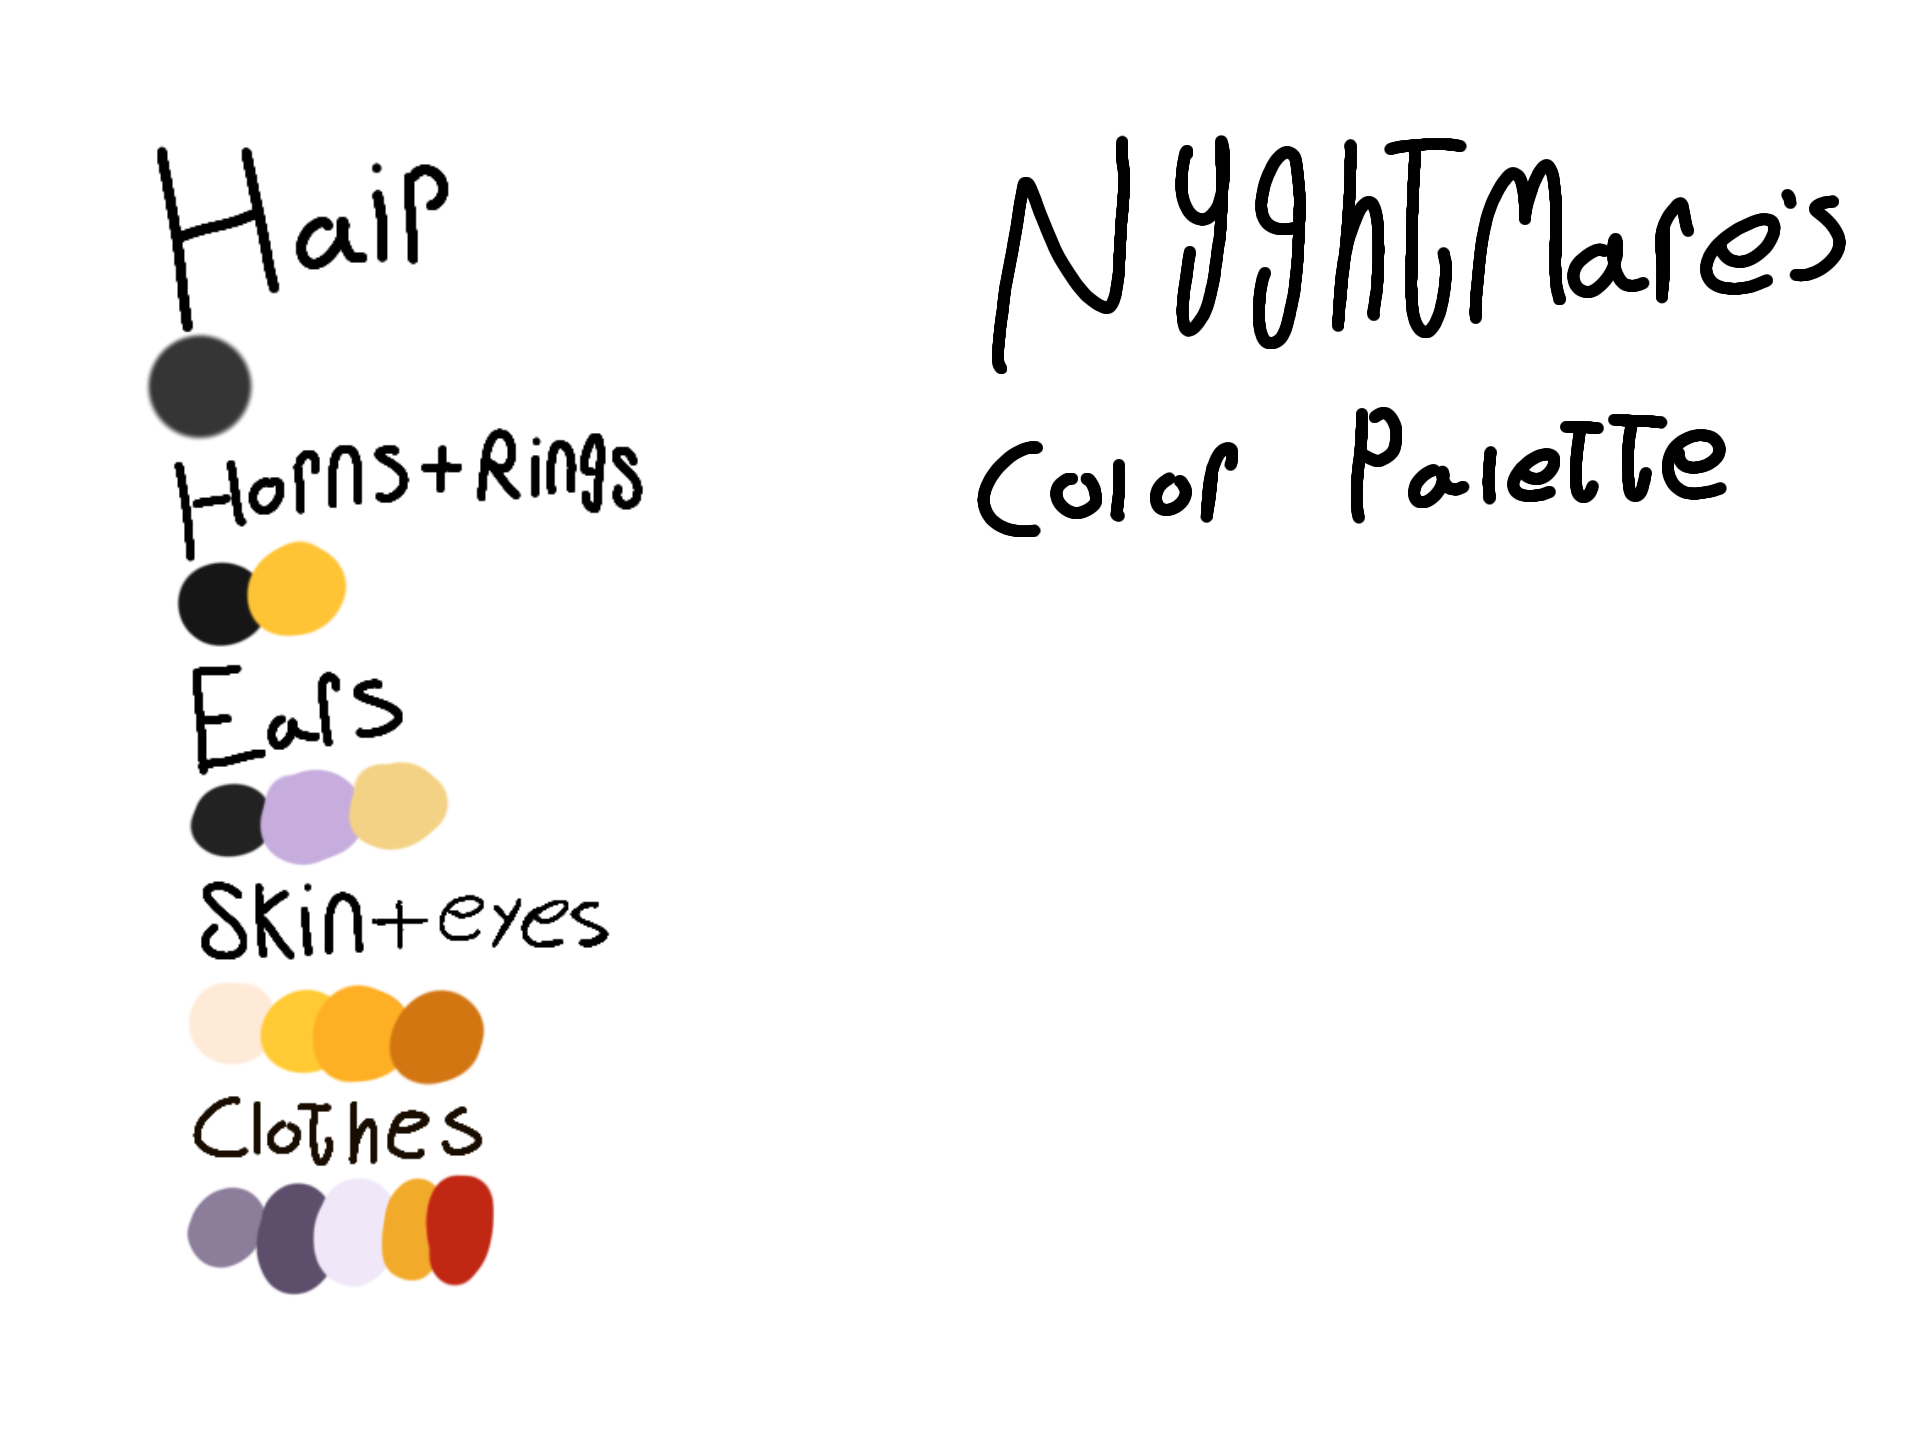 Hair
Horns+Rings
Ears
Skin+eyes
Clothes
NyghTMare's
Color Palette